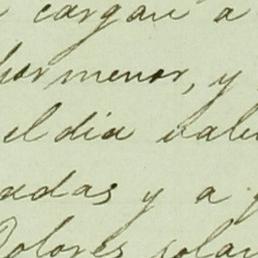 cargan a
por menor, y
el dia
adas y a
Dolores solar